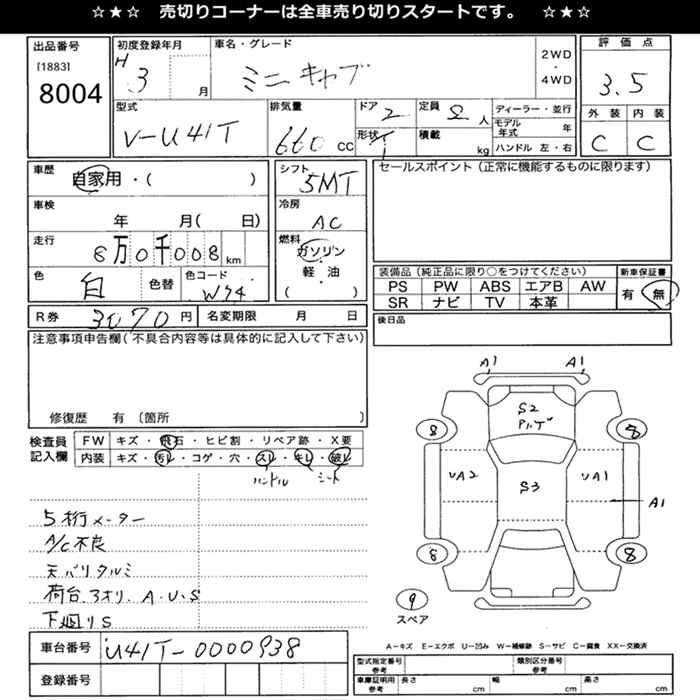 ☆★☆ 売切りコーナーは全車売り切りスタートです。 ☆★☆
出品番号
[1883]
8004
初度登録年月
H 3 月
車名・グレード
ミニキャブ
2WD
・
4WD
評価点
3.5
型式
V-U41T
排気量
660 CC
ドア
2
形状
T
定員
2 人
積載
kg
ディーラー・並行
モデル年式 年
ハンドル 左・右
外装 内装
C C
車歴
自家用・( )
車検
年 月( 日)
走行
8万0千008 km
色
白
色替
色コード
W74
シフト
5MT
冷房
AC
燃料
ガソリン
・
軽油
( )
セールスポイント(正常に機能するものに限ります)
装備品(純正品に限り○をつけてください)
PS PW ABS エアB AW
SR ナビ TV 本革
新車保証書
有 無
R券 3070 円
名変期限 月 日
後日品
注意事項申告欄(不具合内容等は具体的に記入して下さい)
修復歴 有(箇所 )
検査員
記入欄
FW キズ・飛石・ヒビ割・リペア跡・X要
内装 キズ・汚レ・コゲ・穴・スレ・キレ・破レ
ハンドル シート
5桁メーター
A/C不良
天バリタルミ
荷台.3オリ.A.U.S
下廻りS
A1 A1
S2
P.ハゲ
8 8
UA2 S3 UA1
A1
8 8
9
スペア
A-キズ E-エクボ U-凹み W-補修跡 S-サビ C-腐食 XX-交換済
車台番号
U41T-0000938
登録番号
型式指定番号
参考
類別区分番号
参考
車庫証明用
参考
長さ cm
幅 cm
高さ cm